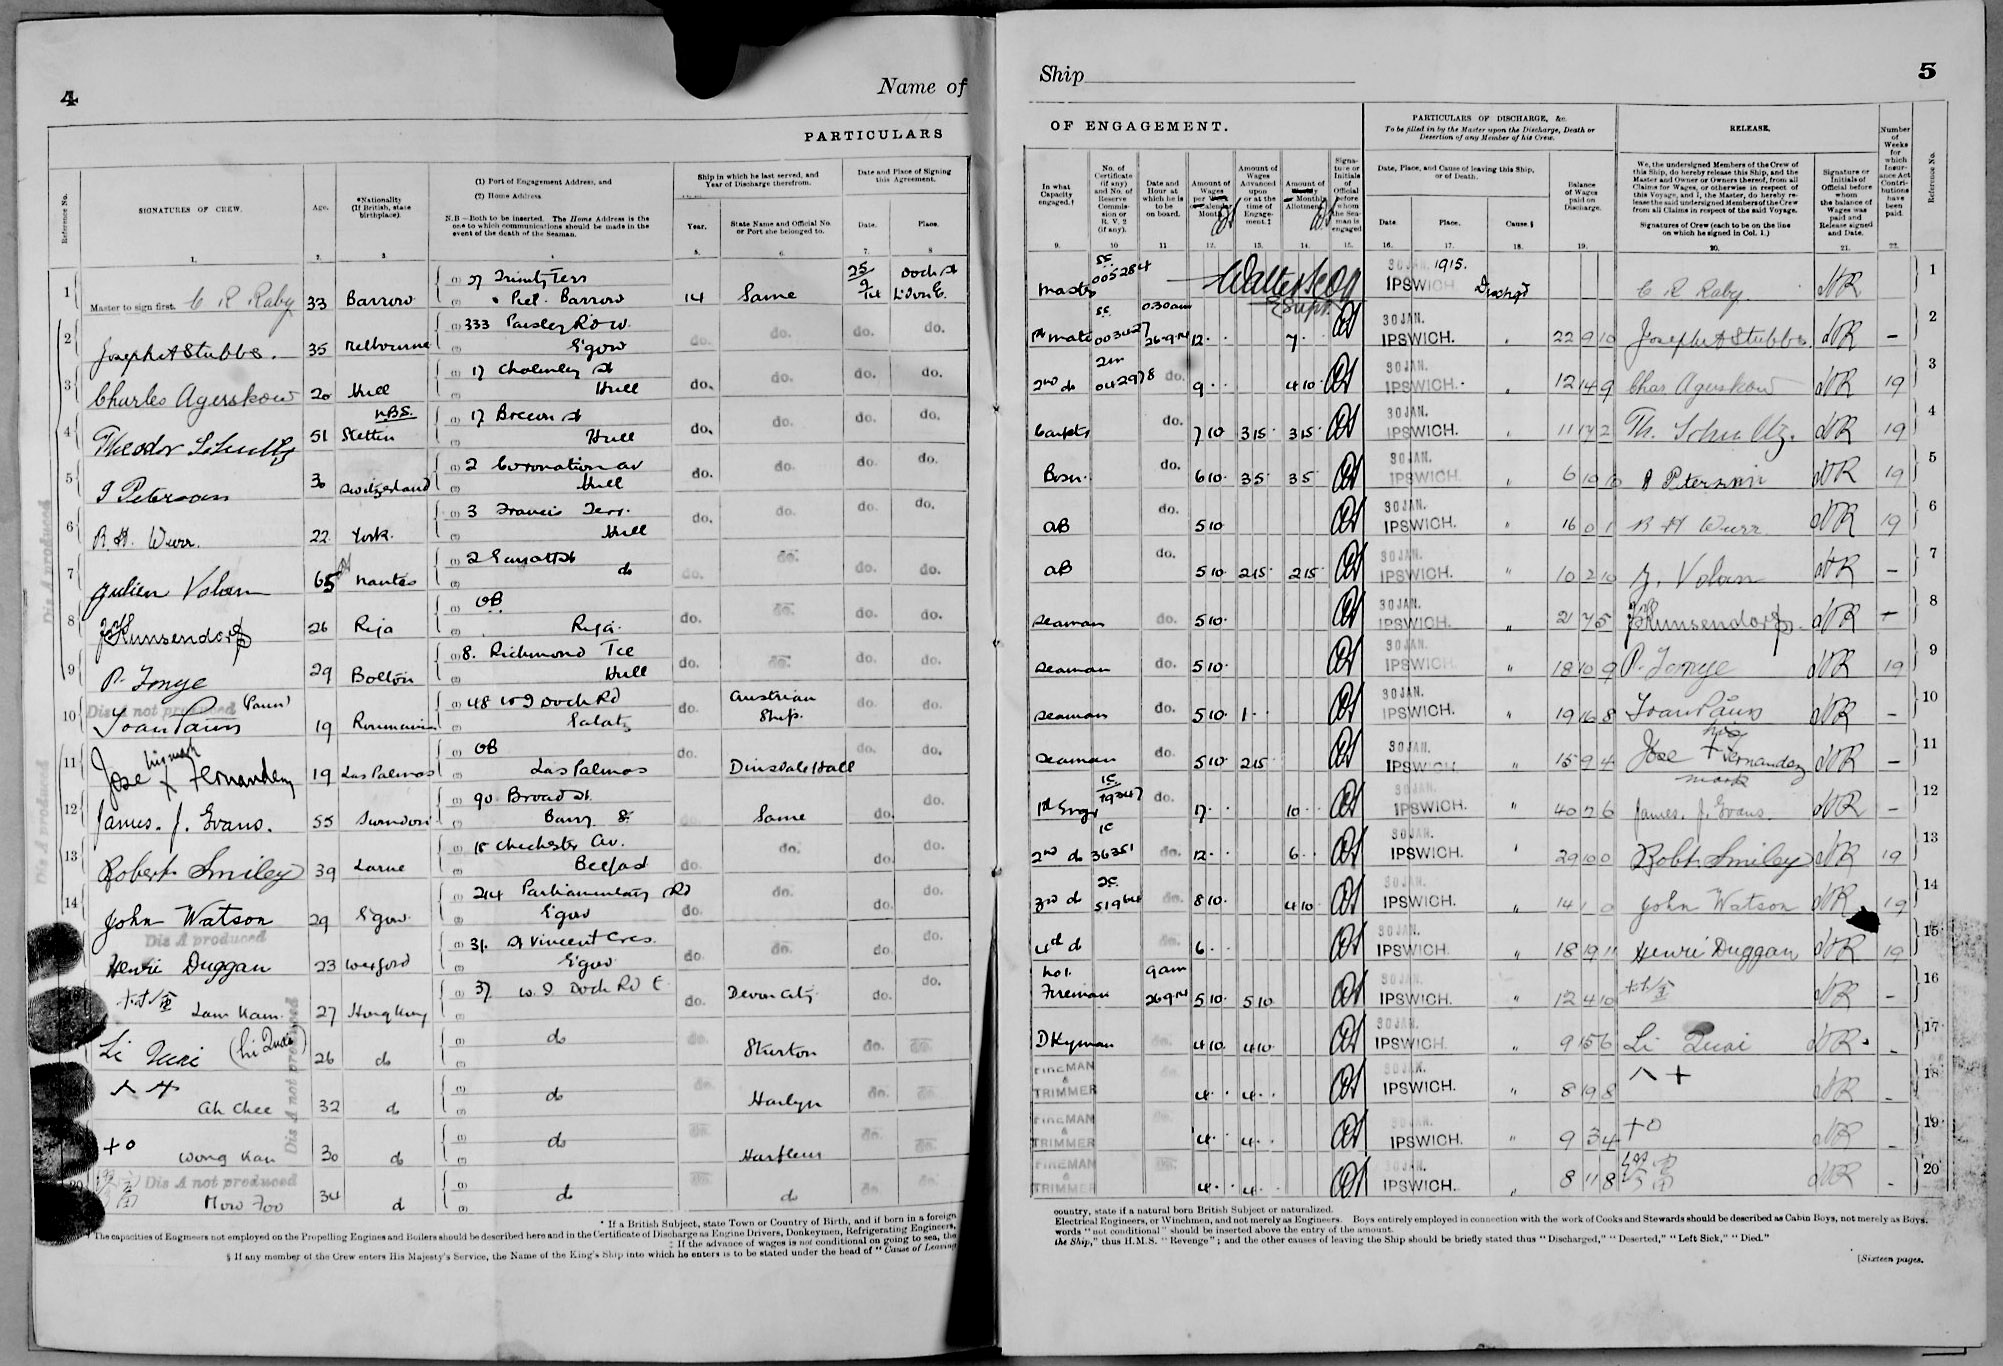 4
Name of
Ship
5
PARTICULARS
OF ENGAGEMENT.
PARTICULARS OF DISCHARGE, &c.
To be filled in by the Master upon the Discharge, Death or Desertion of any Member of his Crew.
RELEASE.
Reference No.
SIGNATURES OF CREW.
Age.
*Nationality (If British, state birthplace).
(1) Port of Engagement Address, and
(2) Home Address.
N.B.—Both to be inserted. The Home Address is the one to which communications should be made in the event of the death of the Seaman.
Ship in which he last served, and Year of Discharge therefrom.
Year.
State Name and Official No. or Port she belonged to.
Date and Place of Signing this Agreement.
Date.
Place.
In what Capacity engaged.†
No. of Certificate (if any) and No. of Reserve Commission or R. V. 2 (if any).
Date and Hour at which he is to be on board.
Amount of Wages per Calendar Month
Amount of Wages Advanced upon or at the time of Engagement.‡
Amount of Monthly Allotment.
Signature or Initials of Official before whom the Seaman is engaged
Date, Place, and Cause of leaving this Ship, or of Death.
Date.
Place.
Cause.§
Balance of Wages paid on Discharge.
We, the undersigned Members of the Crew of this Ship, do hereby release this Ship, and the Master and Owner or Owners thereof, from all Claims for Wages, or otherwise in respect of this Voyage, and I, the Master, do hereby release the said undersigned Members of the Crew from all Claims in respect of the said Voyage.
Signatures of Crew (each to be on the line on which he signed in Col. 1.)
Signature or Initials of Official before whom the balance of Wages was paid and Release signed and Date.
Number of Weeks for which Insurance Act Contributions have been paid.
Reference No.
1 Master to sign first. C R Raby 33 Barrow 27 Trinity Terr Barrow 14 Same 25/9/14 Dock St
Master 005284 30 JAN. 1915. IPSWICH Dischgd C R Raby 1
2 Joseph A Stubbs. 35 Melbourne 333 Paisley Row. Ggow do. do. do. do.
1st mate 003427 0.30am 26.9.14 12 7 30 JAN. IPSWICH. 22 9 10 Joseph A Stubbs. – 2
3 Charles Agerskow 20 Hull 17 Cholmley St Hull do. do. do. do.
2nd do 042978 do. 9 4 10 30 JAN. IPSWICH. 12 14 9 Chas Agerskow 19 3
4 Theodor Schultz 51 Stettin NBS. 17 Brecon St Hull do. do. do. do.
Carptr do. 7 10 3 15 3 15 30 JAN. IPSWICH. 11 17 2 Th. Schultz. 19 4
5 Peterson 30 Switzerland 2 Coronation av Hull do. do. do. do.
Bosn. do. 6 10 3 5 3 5 30 JAN. IPSWICH. 6 19 10 19 5
6 R. H. Wurr. 22 York. 3 Francis Terr. Hull do. do. do. do.
AB do. 5 10 30 JAN. IPSWICH. 16 0 1 R H Wurr 19 6
7 Julien Volan 65 Nantes do do. do. do. do.
AB do. 5 10 2 15 2 15 30 JAN. IPSWICH. 10 2 10 J. Volan – 7
8 Kunsendorf 26 Riga OB Riga. do. do. do. do.
Seaman do. 5 10 30 JAN. IPSWICH. 21 7 5 Kunsendorf – 8
9 P. Tonge 29 Bolton 8. Richmond Tce Hull do. do. do. do.
Seaman do. 5 10 30 JAN. IPSWICH. 18 10 9 P. Tonge 19 9
Dis A not produced
10 Ioan Paun (Paun) 19 Roumania 48 W I Dock Rd Galatz do. Austrian Ship. do. do.
Seaman do. 5 10 1 30 JAN. IPSWICH. 19 16 8 Ioan Paun – 10
11 Jose his mark X Fernandez 19 Las Palmas OB Las Palmas do. Dinsdale Hall do. do.
Seaman do. 5 10 2 15 30 JAN. IPSWICH 15 9 4 Jose his + mark Fernandez – 11
12 James. J. Evans. 55 Swindon 90 Broad St. Barry do. Same do. do.
1st Engr do. 17 10 30 JAN. IPSWICH. 40 7 6 James. J. Evans. – 12
13 Robert Smiley 39 Larne 15 Chichester Av. Belfast do. do. do. do.
2nd do 36351 do. 12 6 30 JAN. IPSWICH. 29 10 0 Robt. Smiley 19 13
14 John Watson 29 Ggow 244 Parliamentary Rd Ggow do. do. do. do.
3rd do do. 8 10 4 10 30 JAN. IPSWICH. 14 1 0 John Watson 19 14
Dis A produced
Henri Duggan 23 Wexford 31. St Vincent Cres. Ggow do. do. do. do.
4th d do. 6 30 JAN. IPSWICH. 18 19 11 Henri Duggan 19 15
Lam Kam. 27 Hong Kong 37 W. I Dock Rd E do. Devon City do. do.
No 1. Fireman 9am 26.9.14 5 10 5 10 30 JAN. IPSWICH. 12 4 10 – 16
Li Quai (Li Quai) 26 d do do. do. do.
DKyman do. 4 10 4 10 30 JAN. IPSWICH. 9 15 6 Li Quai – 17
Ah Chee 32 d do do. Harlyn do. do.
FIREMAN & TRIMMER do. 4 4 30 JAN. IPSWICH. 8 19 8 – 18
Wong Kau 30 d do do. Harfleur do. do.
FIREMAN & TRIMMER do. 4 4 30 JAN. IPSWICH. 9 3 4 – 19
Dis A not produced
20 Mow Foo 34 d do do. do do. do.
FIREMAN & TRIMMER do. 4 4 30 JAN. IPSWICH. 8 11 8 – 20
Dis A produced
Dis A produced
Dis A not produced
* If a British Subject, state Town or Country of Birth, and if born in a foreign
country, state if a natural born British Subject or naturalized.
The capacities of Engineers not employed on the Propelling Engines and Boilers should be described here and in the Certificate of Discharge as Engine Drivers, Donkeymen, Refrigerating Engineers,
Electrical Engineers, or Winchmen, and not merely as Engineers. Boys entirely employed in connection with the work of Cooks and Stewards should be described as Cabin Boys, not merely as Boys.
‡ If the advance of wages is not conditional on going to sea, the
words "not conditional" should be inserted above the entry of the amount.
§ If any member of the Crew enters His Majesty's Service, the Name of the King's Ship into which he enters is to be stated under the head of "Cause of Leaving
the Ship," thus H.M.S. "Revenge"; and the other causes of leaving the Ship should be briefly stated thus "Discharged," "Deserted," "Left Sick," "Died."
[Sixteen pages.